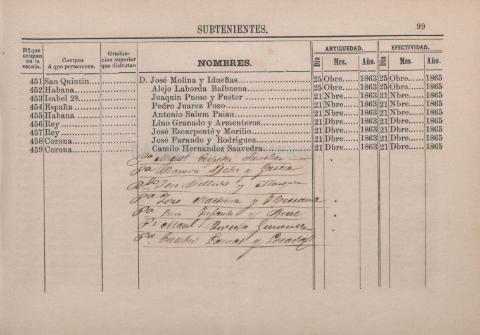 SUBTENIENTES. 99
N.º que ocupan en la escala. Cuerpos á que pertenecen. Graduacion superior que disfrutan NOMBRES. ANTIGUEDAD. Dia Mes. Año. EFECTIVIDAD. Dia Mes. Año.
451 San Quintin D. José Molina y Idueñas 25 Obre. 1863 25 Obre. 1865
452 Habana Alejo Laborda Balbuena 25 Obre. 1863 25 Obre. 1865
453 Isabel 2ª Joaquin Pueso y Fustor 21 Nbre. 1863 21 Nbre. 1865
454 España Pedro Juarez Pozo 21 Nbre. 1863 21 Nbre. 1865
455 Habana Antonio Salum Paisau 21 Nbre. 1863 21 Nbre. 1865
456 Rey Lino Granado y Armenteros 21 Dbre. 1863 21 Dbre. 1865
457 Rey José Escarpenté y Morilio 21 Dbre. 1863 21 Dbre. 1865
458 Corona José Farando y Rodriguez 21 Dbre. 1863 21 Dbre. 1865
459 Corona Camilo Hernandez Saavedra 21 Dbre. 1863 21 Dbre. 1865
Miguel
Ramon y Garcia
Jose y
y
y
Gimenez
y